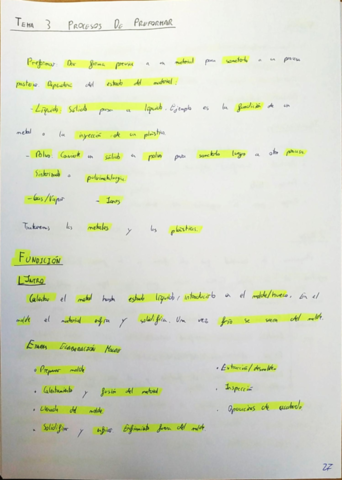 TEMA 3 PROCESOS DE PREFORMAR
Preformar: Dar forma previa a un material para someterlo a un proceso
posterior. Dependiendo del estado del material:
- Líquido: Sólido pasa a líquido. Ejemplo es la fundición de un
metal o la inyección de un plástico.
- Polvo: Convertir un sólido a polvo para someterlo luego a otro proceso
Sinterizado o pulvimetalurgia
- Gas/Vapor - Iones
Trataremos los metales y los plásticos.
FUNDICIÓN
INTRO
Calentar el metal hasta estado líquido e introducirlo en el molde/hueco. En el
molde el material enfría y solidifica. Una vez frío se saca del molde.
ETAPAS ELABORACIÓN
• Preparar molde
• Extracción/desmoldeo
• Calentamiento y fusión del material
• Inspección
• Llenado del molde
• Operaciones de acabado
• Solidificar y enfriamiento fuera del molde
27